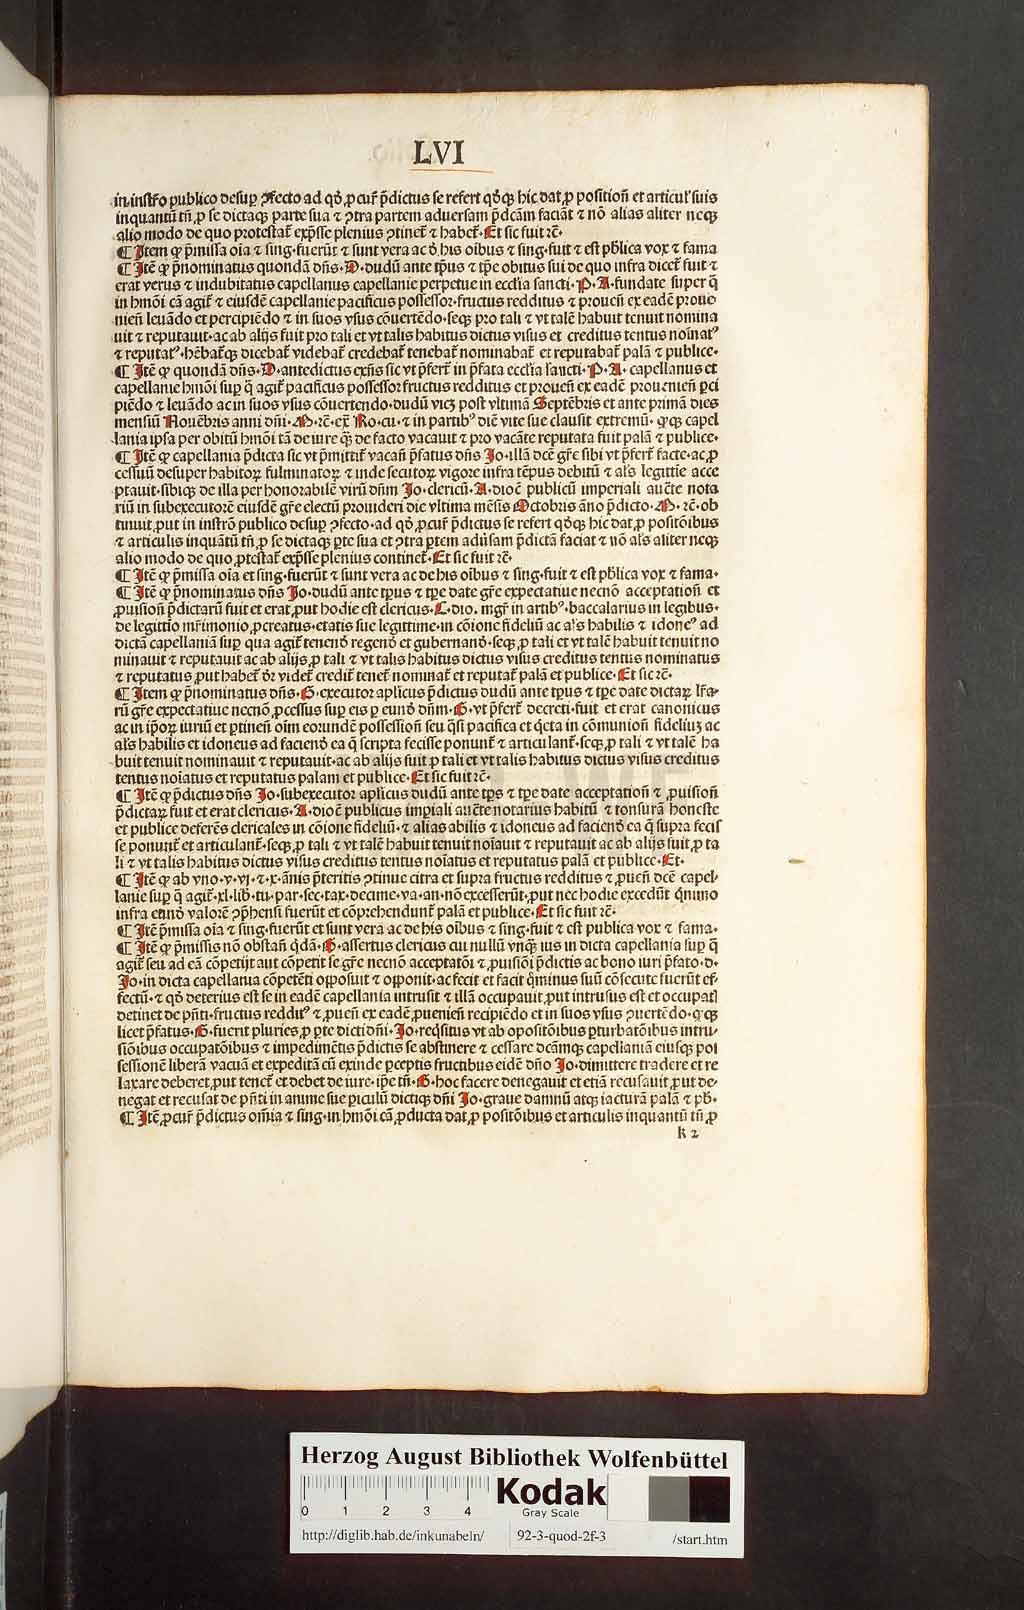 LVI
in instr̄o publico desup̲ ꝯfecto ad qd̄ ꝓcur̄ p̄dictus se refert qd̄qꝫ hic dat ꝓ position̄ et articul' suis
inquantū tn̄ ꝓ se dictaqꝫ parte sua ⁊ ꝯtra partem aduersam p̄dcām faciāt ⁊ nō alias aliter neqꝫ
alio modo de quo protestat̄ exp̄sse plenius ꝯtinet̄ ⁊ habet̄· Et sic fuit rē·
¶ Item ꝙ p̄missa oīa ⁊ sing·fuerūt ⁊ sunt vera ac d̄ his oībus ⁊ sing·fuit ⁊ est pb̄lica vox ⁊ fama
¶ Itē ꝙ p̄nominatus quondā dn̄s·D·dudū ante tp̄us ⁊ tp̄e obitus sui de quo infra dicet̄ fuit ⁊
erat verus ⁊ indubitatus capellanus capellanie perpetue in eccl̄ia sancti·P·A·fundate super q̄
in hmōi cā agit̄ ⁊ eiusdē capellanie pacificus possessor·fructus redditus ⁊ prouen̄ ex eadē proue
nien̄ leuādo et percipiēdo ⁊ in suos vsus cōuertēdo·seqꝫ pro tali ⁊ vt talē habuit tenuit nomina
uit ⁊ reputauit·ac ab alijs fuit pro tali et vt talis habitus dictus visus et creditus tentus noīnatꝰ
⁊ reputatꝰ·hēbat̄qꝫ dicebat̄ videbat̄ credebat̄ tenebat̄ nominabat̄ et reputabat̄ palā ⁊ publice·
¶ Itē ꝙ quondā dn̄s·D·antedictus exn̄s sic vt p̄fert̄ in p̄fata eccl̄ia sancti·P·A· capellanus et
capellanie hmōi sup̲ q̄ agit̄ pacificus possessor fructus redditus et prouen̄ ex eadē prouenien̄ p̲ci
piēdo ⁊ leuādo ac in suos vsus cōuertendo·dudū vicꝫ post vltimā Septēbris et ante primā dies
mensiū Nouēbris anni dn̄i·M·rē·ex̄ Ro·cu·⁊ in partibꝰ diē vite sue clausit extremū· ꝙqꝫ capel
lania ipsa per obitū hmōi tā de iure q̄ꝫ de facto vacauit ⁊ pro vacāte reputata fuit palā ⁊ publice·
¶ Itē ꝙ capellania p̄dicta sic vt p̄mittit̄ vacan̄ p̄fatus dn̄s Jo·illā dcē gr̄e sibi vt p̄fert̄ facte·ac ꝓ
cessuū desuper habitoꝝ fulminatoꝝ ⁊ inde secutoꝝ vigore infra tēpus debitū ⁊ al's legittie acce
ptauit·sibiqꝫ de illa per honorabilē virū dn̄m Jo·clericū·A·dioc̄ publicū imperiali auc̄te nota
riū in subexecutorē eiusdē gr̄e electū prouideri die vltima mēsis Octobris āno p̄dicto·M· rē·ob
tinuit ꝓut in instrō publico desup̲ ꝯfecto·ad qd̄ ꝓcur̄ p̄dictus se refert qd̄qꝫ hic dat ꝓ positōibus
⁊ articulis inquātū tn̄ ꝓ se dictaqꝫ p̲te sua et ꝯtra p̲tem aduersam p̄dictā faciat ⁊ nō al's aliter neqꝫ
alio modo de quo ꝓtestat̄ exp̄sse plenius continet̄·Et sic fuit rē·
¶ Itē ꝙ p̄missa oīa et sing·fuerūt ⁊ sunt vera ac de his oībus ⁊ sing·fuit ⁊ est pb̄lica vox ⁊ fama·
¶ Itē ꝙ p̄nominatus dn̄s Jo·dudū ante tp̄us ⁊ tp̄e date gr̄e expectatiue necnō acceptation̄ et
ꝓuision̄ p̄dictarū fuit et erat ꝓut hodie est clericus·L·dio. mgr̄ in artibꝰ·baccalarius in legibus·
de legittīo mr̄imonio ꝓcreatus·etatis sue legittime·in cōione fideliū ac al's habilis ⁊ idoneꝰ ad
dictā capellaniā sup̲ qua agit̄ tenend̄ regend̄ et gubernand̄·seqꝫ ꝓ tali et vt talē habuit tenuit no
minauit ⁊ reputauit ac ab alijs ꝓ tali ⁊ vt talis habitus dictus visus creditus tentus nominatus
⁊ reputatus ꝓut habet̄ dr̄ videt̄ credit̄ tenet̄ nominat̄ et reputat̄ palā et publice·Et sic rē·
¶ Item ꝙ p̄nominatus dn̄s·G·executor apl̄icus p̄dictus dudū ante tp̄us ⁊ tp̄e date dictaꝝ lr̄a·
rū gr̄e expectatiue necnō ꝓcessus sup̲ eis p̲ eund̄ dn̄m·G·vt p̄fert̄ decreti·fuit et erat canonicus
ac in ip̄oꝝ iuriū et p̲tinen̄ oīm eorundē possession̄ seu q̄si pacifica et q̄eta in cōmunion̄ fideliuꝫ ac
al's habilis et idoneus ad faciend̄ ea q̄ scripta fecisse ponunt̄ ⁊ articulant̄·seqꝫ ꝓ tali ⁊ vt talē ha
buit tenuit nominauit ⁊ reputauit·ac ab alijs fuit ꝓ tali et vt talis habitus dictus visus creditus
tentus noīatus et reputatus palam et publice·Et sic fuit rē·
¶ Itē ꝙ p̄dictus dn̄s Jo·subexecutor apl̄icus dudū ante tp̄s ⁊ tp̄e date acceptation̄ ⁊ ꝓuision̄
p̄dictaꝝ fuit et erat clericus·A·dioc̄ publicus imp̲iali auc̄te notarius habitū ⁊ tonsurā honeste
et publice deferēs clericales in cōione fideliū·⁊ alias abilis ⁊ idoneus ad faciend̄ ea q̄ supra fecis
se ponunt̄ et articulant̄·seqꝫ ꝓ tali ⁊ vt talē habuit tenuit noīauit ⁊ reputauit ac ab alijs fuit ꝓ ta
li ⁊ vt talis habitus dictus visus creditus tentus noīatus et reputatus palā et publice·Et·
¶ Itē ꝙ ab vno·v·vj·⁊·x·ānis p̄teritis ꝯtinue citra et supra fructus redditus ⁊ ꝓuen̄ dcē capel·
lanie sup̲ q̄ agit̄·xl·lib·tu·par·sec·tax·decime·va·an·nō excesserūt ꝓut nec hodie excedūt q̄nimo
infra eund̄ valorē ꝯp̄hensi fuerūt et cōprehendunt̄ palā et publice·Et sic fuit rē·
¶ Itē p̄missa oīa ⁊ sing·fuerūt et sunt vera ac de his oībus ⁊ sing·fuit ⁊ est publica vox ⁊ fama·
¶ Itē ꝙ p̄missis nō obstan̄ q̄dā·G·assertus clericus cui nullū vnqꝫ ius in dicta capellania sup̲ q̄
agit̄ seu ad eā cōpetijt aut cōpetit se gr̄e necnō acceptatōi ⁊ ꝓuisiōi p̄dictis ac bono iuri p̄fato·d·
Jo·in dicta capellania cōpetēti opposuit ⁊ opponit·ac fecit et facit q̄minus suū cōsecute fuerūt ef·
fectū·⁊ qd̄ deterius est se in eadē capellania intrusit ⁊ illā occupauit ꝓut intrusus est et occupatā
detinet de pn̄ti·fructus redditꝰ ⁊ ꝓuen̄ ex eadē ꝓuenien̄ recipiēdo et in suos vsus ꝯuertēdo·ꝙqꝫ
licet p̄fatus·G·fuerit pluries ꝓ p̲te dicti dn̄i·Jo·req̄situs vt ab opositōibus p̲turbatōibus intru·
siōibus occupatōibus ⁊ impedimētis p̄dictis se abstinere ⁊ cessare dcāmqꝫ capellaniā eiusqꝫ pos
sessionē liberā vacuā et expeditā cū exinde p̲ceptis fructibus eidē dn̄o Jo·dimittere tradere et re
laxare deberet ꝓut tenet̄ et debet de iure·ip̄e tn̄·G·hoc facere denegauit et etiā recusauit ꝓut de·
negat et recusat de pn̄ti in anime sue p̲iculū dictiqꝫ dn̄i Jo·graue damnū atqꝫ iacturā palā ⁊ pb̄·
¶ Itē ꝓcur̄ p̄dictus om̄ia ⁊ sing·in hmōi cā ꝓducta dat ꝓ positōibus et articulis inquantū tn̄ ꝓ
k 2
Herzog August Bibliothek Wolfenbüttel
0 1 2 3 4
Kodak
Gray Scale
http://diglib.hab.de/inkunabeln/ 92-3-quod-2f-3 /start.htm